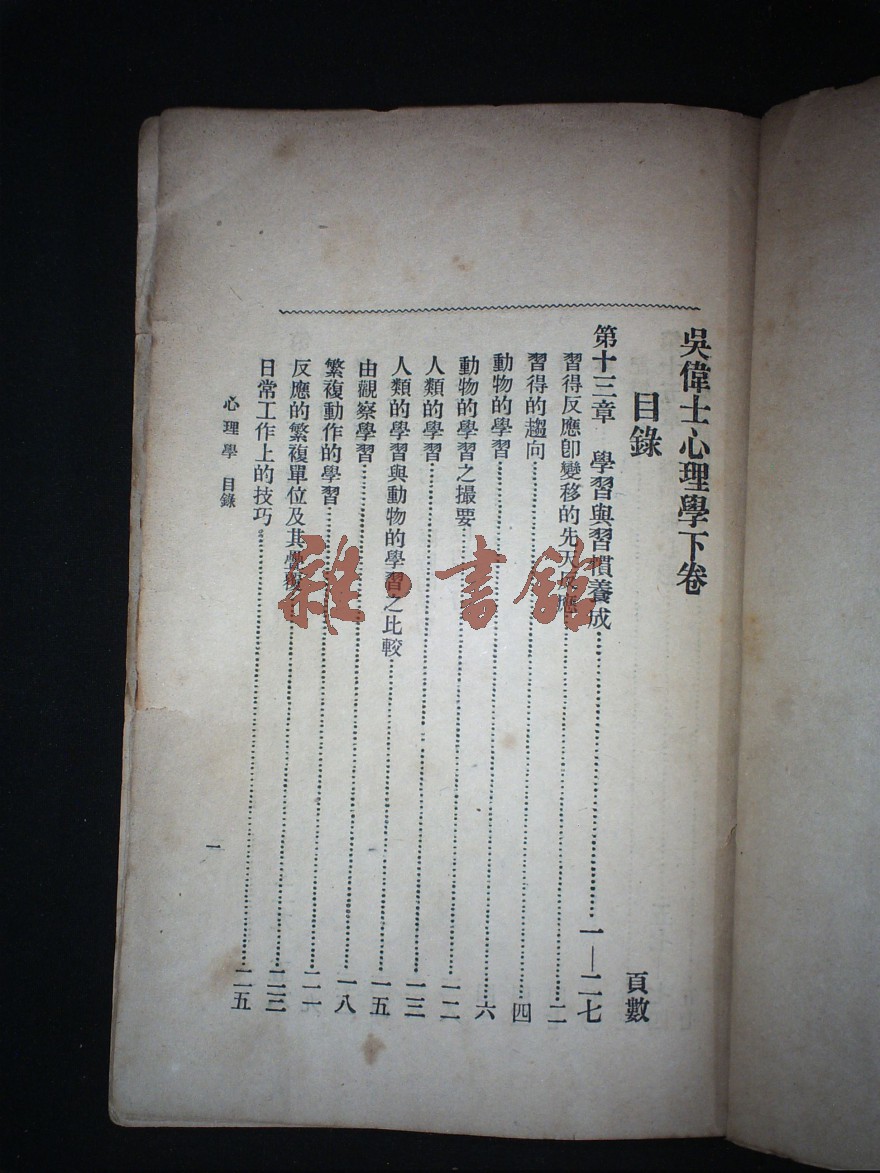 吳偉士心理學下卷
目錄 頁數
第十三章 學習與習慣養成……一—二七
習得反應卽變移的先天反應……二
習得的趨向……四
動物的學習……六
動物的學習之撮要……一二
人類的學習……一三
人類的學習與動物的學習之比較……一五
由觀察學習……一八
繁複動作的學習……二一
反應的繁複單位及其……二三
日常工作上的技巧……二五
心理學 目錄 一
雜·書館